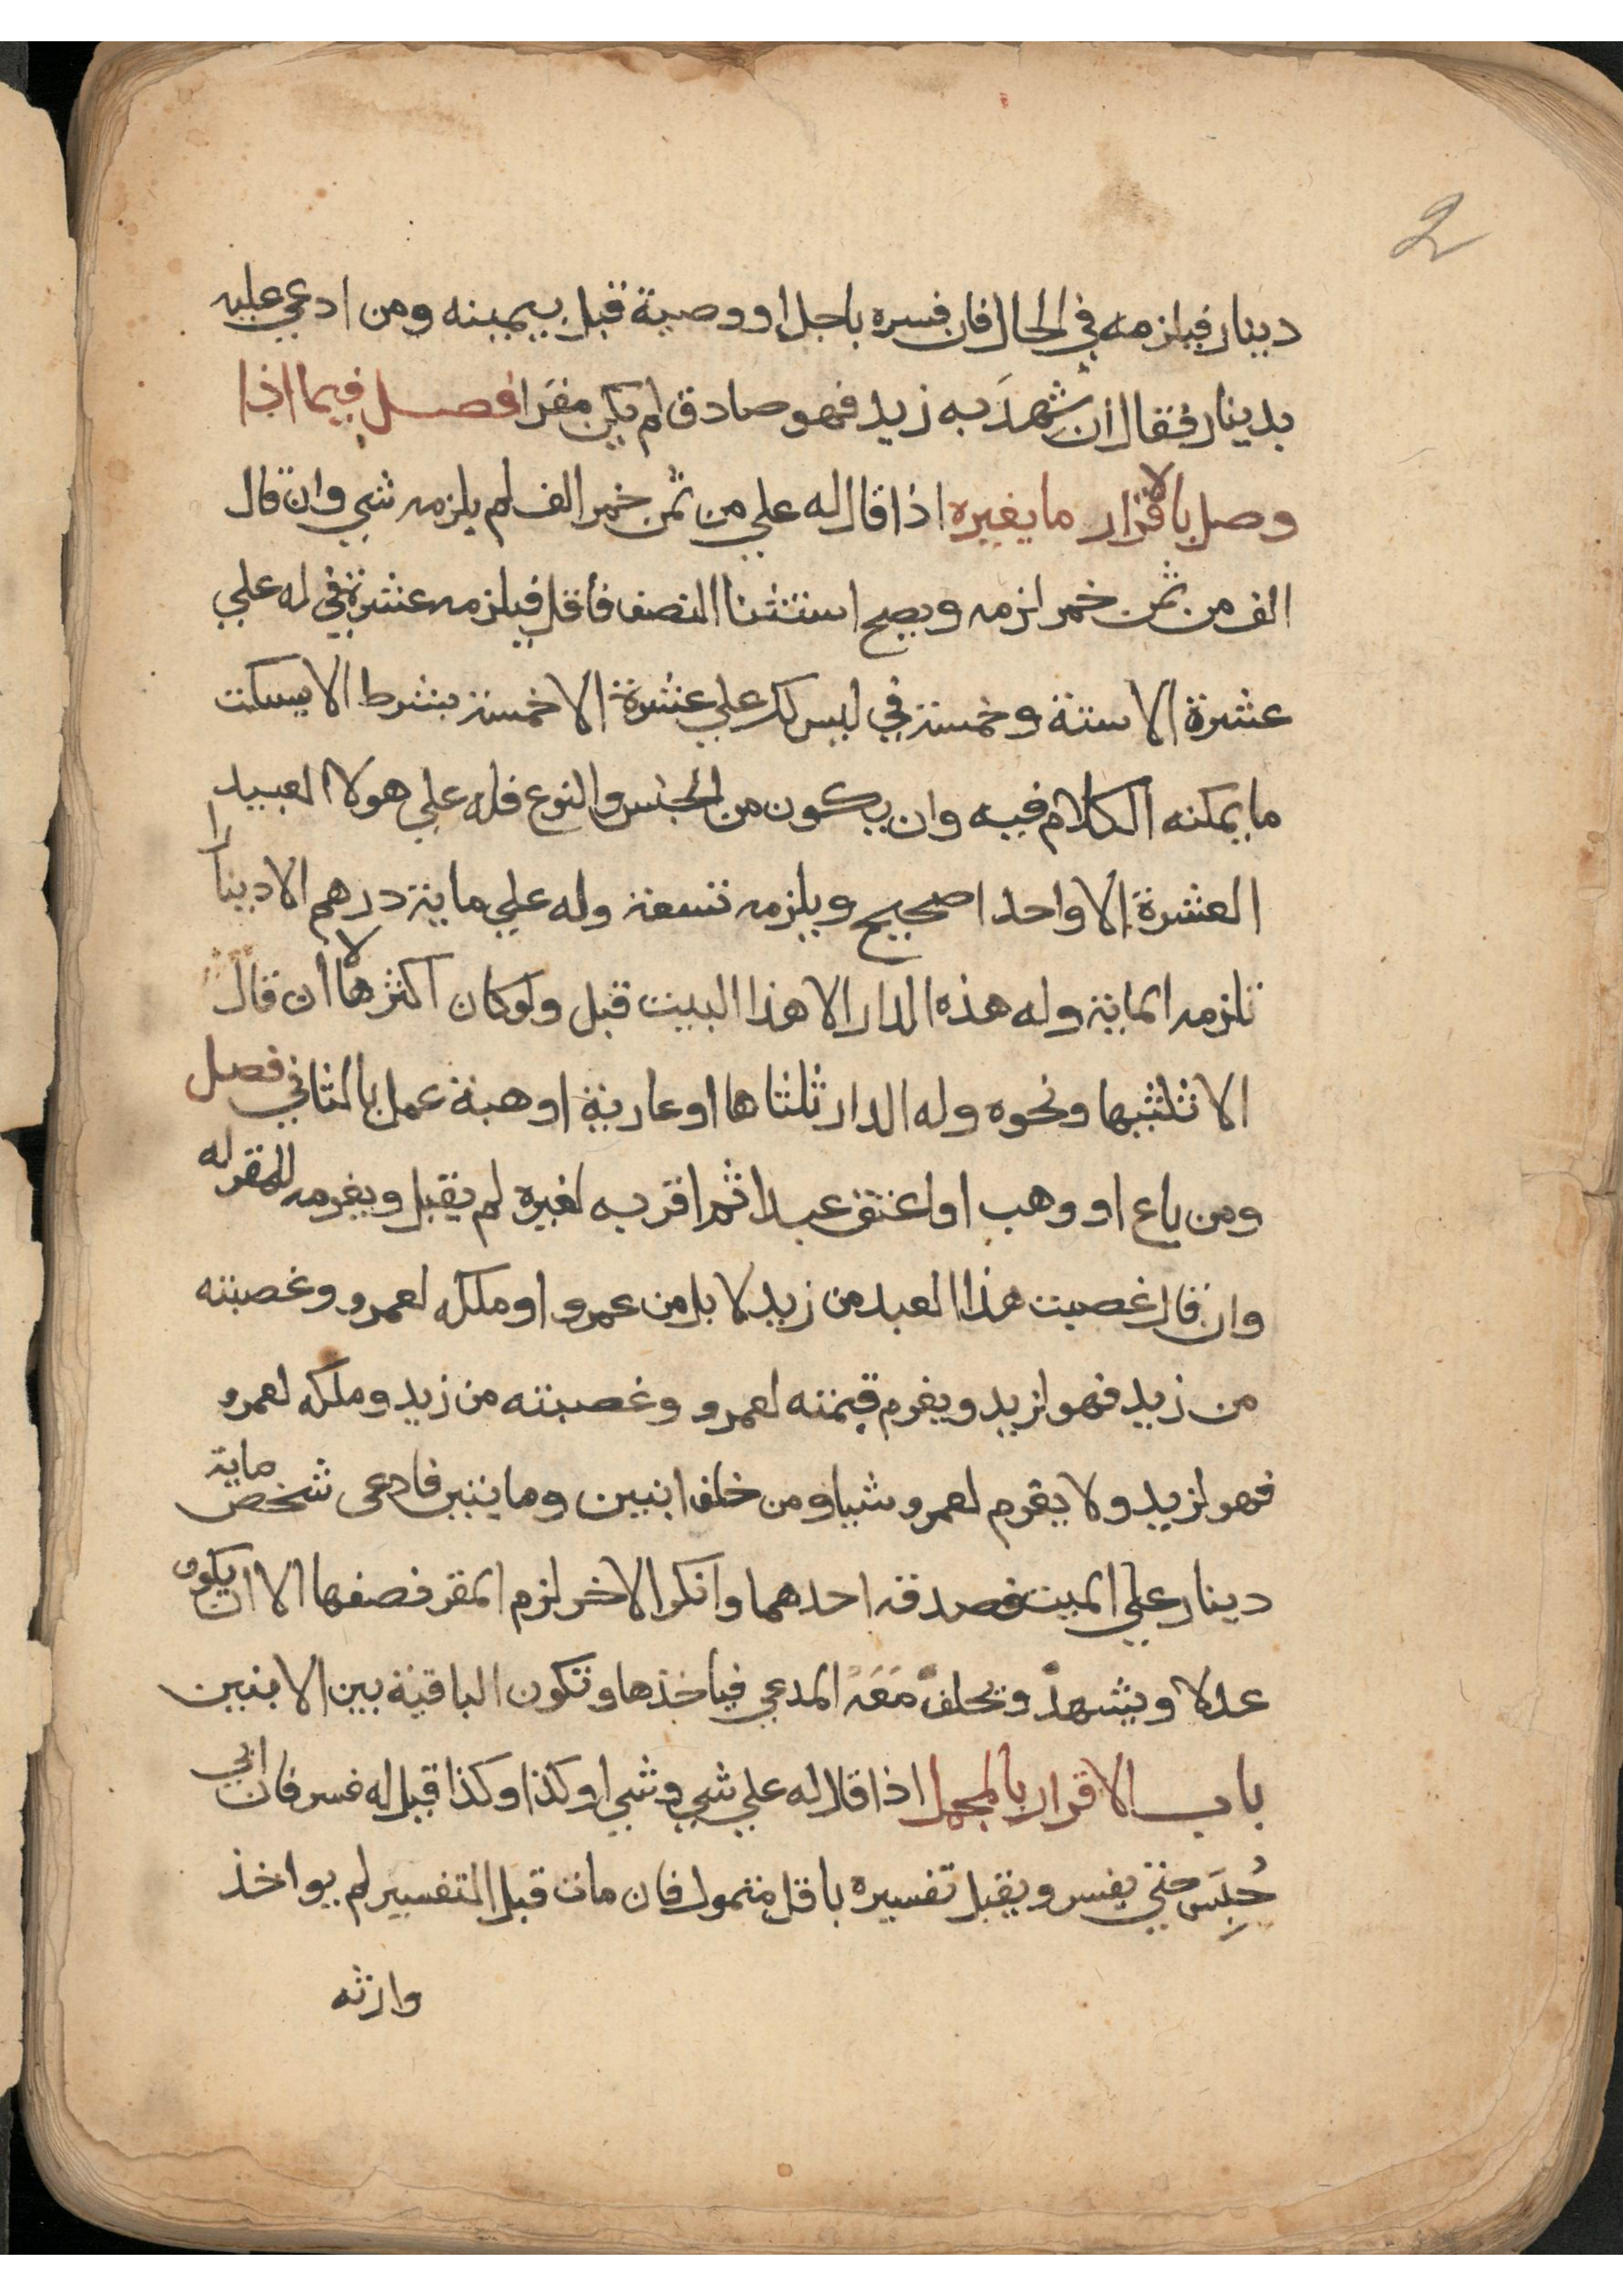 2
دينار فيلزمه في الحال فان فسره باجل او وصية قبل بيمينه ومن ادعي عليه
بدينار فقال أن شهدَ به زيد فهو صادق لم يكن مقرا فصل فيما اذا
وصل بالاقرار ما يغيره اذا قال له علي من ثمن خمر الف لم يلزمه شي وان قال
الف من ثمن خمر لزمه ويصح استثنا النصف فأقل فيلزمه عشرة في له علي
عشرة الا ستة وخمسة في ليس لك علي عشرة الا خمسة بشرط الا يسكت
ما يمكنه الكلام فيه وان يكون من الجنس والنوع فله علي هولا العبيد
العشرة الا واحدا صحيح ويلزمه تسعة وله علي ماية درهم الا دينارا
تلزمه الماية وله هذه الدار الا هذا البيت قبل ولو كان اكثرها لا أن قال
الا ثلثيها ونحوه وله الدار ثلثاها او عارية او هبة عمل بالثاني فصل
ومن باع او وهب او اعتق عبدا ثم اقر به لغيره لم يقبل ويغرمه للمقر له
وان قال غصبت هذا العبد من زيد لا بل من عمرو او ملكه لعمرو وغصبته
من زيد فهو لزيد ويغرم قيمته لعمرو وغصبته من زيد وملكه لعمرو
فهو لزيد ولا يغرم لعمرو شيا ومن خلف ابنين وما يتين فادعى شخص ماية
دينار علي الميت فصدقه احدهما وانكر الاخر لزم المقر نصفها الا ان يكون
عدلا ويشهدُ ويحلفُ مَعَهُ المدعي فياخذها وتكون الباقية بين الابنين
باب الاقرار بالمجمل اذا قال له علي شي وشي او كذا وكذا قيل له فسر فان ابي
حُبِسَ حتي يفسر ويقبل تفسيره باقل متمول فان مات قبل التفسير لم يواخذ
وارثه